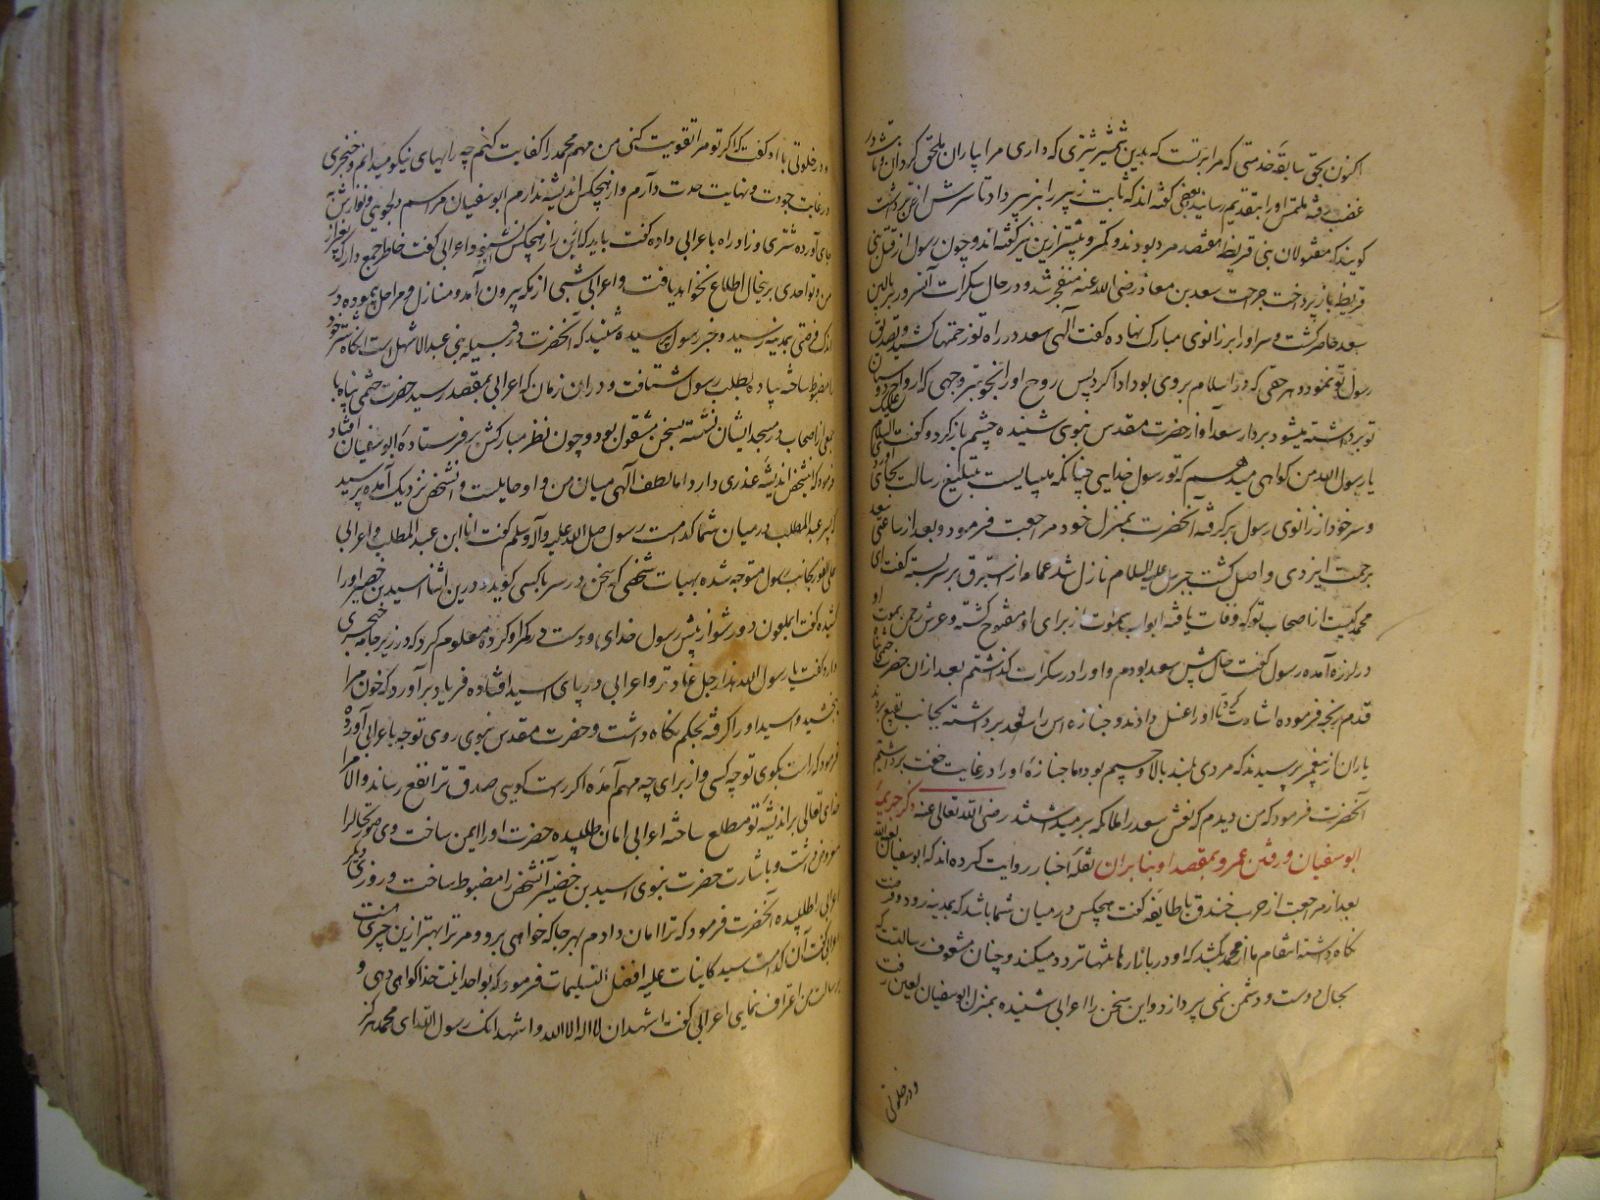 اکنون بحق سابقه خدمتی که مرا بر تست که بدین شمشیر تیزی که داری مرا بیاران ملحق گردان و ثابت در
غضب رفته ملتمس او را بتقدیم رسانید بعضی گفته اند که ثابت زبیر را بزبیر داد تا سرش از تن برداشت
گویند که مقتولان بنی قریظه هفتصد مرد بودند و کمتر و بیشتر ازین نیز گفته اند و چون رسول از قتل بنی
قریظه باز پرداخت جراحت سعد بن معاذ رضی الله عنه منفجر شد و در حال سکرات آنسرور ببالین
سعد حاضر گشت و سر او را بر زانوی مبارک نهاده گفت الهی سعد در راه تو زحمتها کشید و تصدیق
رسول تو نمود و هر حقی که در اسلام بر وی بود ادا کرد پس روح او را بخوبتر وجهی که ارواح دوستان
تو برداشته میشود بردار سعد آواز حضرت مقدس نبوی شنیده چشم باز کرد و گفت السلام علیک
یا رسول الله من گواهی میدهم که تو رسول خدایی چنانکه میبایست بتبلیغ رسالت بجای آوردی
و سر خود از زانوی رسول برگرفته آنحضرت بمنزل خود مراجعت فرمود و بعد از ساعتی سعد
برحمت ایزدی واصل گشت جبرئیل علیه السلام نازل شد عمامه از استبرق بر سر بسته گفت ای
محمد کیست از اصحاب تو که وفات یافته ابواب سموات از برای او مفتوح گشته و عرش رحمن بموت او
در لرزه آمده رسول گفت حال پیش سعد بودم و او را در سکرات گذاشتم بعد از آن حضرت ختمی پناه
قدم رنجه فرموده اشارت کرد تا او را غسل دادند و جنازه اش را سعد برداشته بجانب بقیع بردند
یاران از پیغمبر پرسیدند که مردی بلند بالا و جسیم بود و ما جنازه او را در غایت خفت برداشتیم
آنحضرت فرمود که من دیدم که نعش سعد را ملائکه بر میداشتند رضی الله تعالی عنه ذکر جریمه
ابو سفیان و رفتن عمرو بمقصد او بنابران نقله اخبار روایت کرده اند که ابو سفیان لعنه الله
بعد از مراجعت از حرب خندق با طایفه گفت هیچکس در میان شما باشد که بمدینه رود و فرصت
نگاه داشته انتقام ما از محمد بکشد که او در بازارها تنها تردد میکند و چنان مشعوف رسالتست که
بحال دوست و دشمن نمی پردازد و این سخن را اعرابی شنیده بمنزل ابو سفیان لعین رفت
و در خلوتی
و در خلوتی با او گفت که اگر تو مرا تقویت کنی من مهم محمد را کفایت کنم چه راههای نیکو میدانم و خنجری
در غایت جودت و نهایت حدت دارم و از هیچکس اندیشه ندارم ابو سفیان مراسم دلجویی و نوازش به
جای آورده شتری و زاد راه با عرابی داده گفت باید که این راز هیچکس نشنود اعرابی گفت خاطر جمع دار که بغیر از
من و تو احدی بر اینحال اطلاع نخواهد یافت و اعرابی شبی از مکه بیرون آمد و منازل و مراحل پیموده در
اندک فرصتی بمدینه رسید و خبر رسول پرسیده شنید که آنحضرت در قبیله بنی عبد الاشهل است آنگاه شتر خود
را مضبوط ساخته پیاده بطلب رسول شتافت و در آن زمان که اعرابی بمقصد رسید حضرت ختمی پناه با
جمعی از اصحاب در مسجد ایشان نشسته بسخن مشغول بود و چون نظر مبارکش بر فرستاده ابو سفیان افتاد
فرمود که این شخص اندیشه غدری دارد اما لطف الهی میان من و او حایلست و آن شخص نزدیک آمده پرسید
که پسر عبد المطلب در میان شما کدامست رسول صلی الله علیه و آله و سلم گفت انا ابن عبد المطلب و اعرابی
علی الفور بجانب رسول متوجه شده بهیات شخصی که سخن در سر با کسی گوید درین اثنا اسید بن حضیر او را
کشیده گفت ای ملعون دور شو از پیش رسول خدای و دست در کمر او کرده معلوم کرد که در زیر جامه خنجری
دارد گفت یا رسول الله هذا رجل غادر و اعرابی در پای اسید افتاده فریاد بر آورد که خون مرا
ببخشید و اسید او را گرفته محکم نگاه داشت و حضرت مقدس نبوی روی توجه با عرابی آورده
فرمود که راست بگوی تو چه کسی و از برای چه مهم آمده اگر راست گویی صدق ترا نفع رساند و الا مرا
خدای تعالی بر اندیشه تو مطلع ساخته اعرابی امان طلبیده حضرت او را ایمن ساخت وی صورت حال را
معروض داشت و باشارت حضرت نبوی اسید بن حضیر آن شخص را مضبوط ساخت و روز دیگر
اعرابی را طلبیده آنحضرت فرمود که ترا امان دادم بهر جا که خواهی برو و مر ترا بهتر ازین چیزی هست
اعرابی گفت آن کدامست سید کاینات علیه افضل التسلیمات فرمود که بوحدانیت خدا گواهی دهی و
برسالت من اعتراف نمایی اعرابی گفت اشهد ان لا اله الا الله و اشهد انک رسول الله ای محمد هرگز